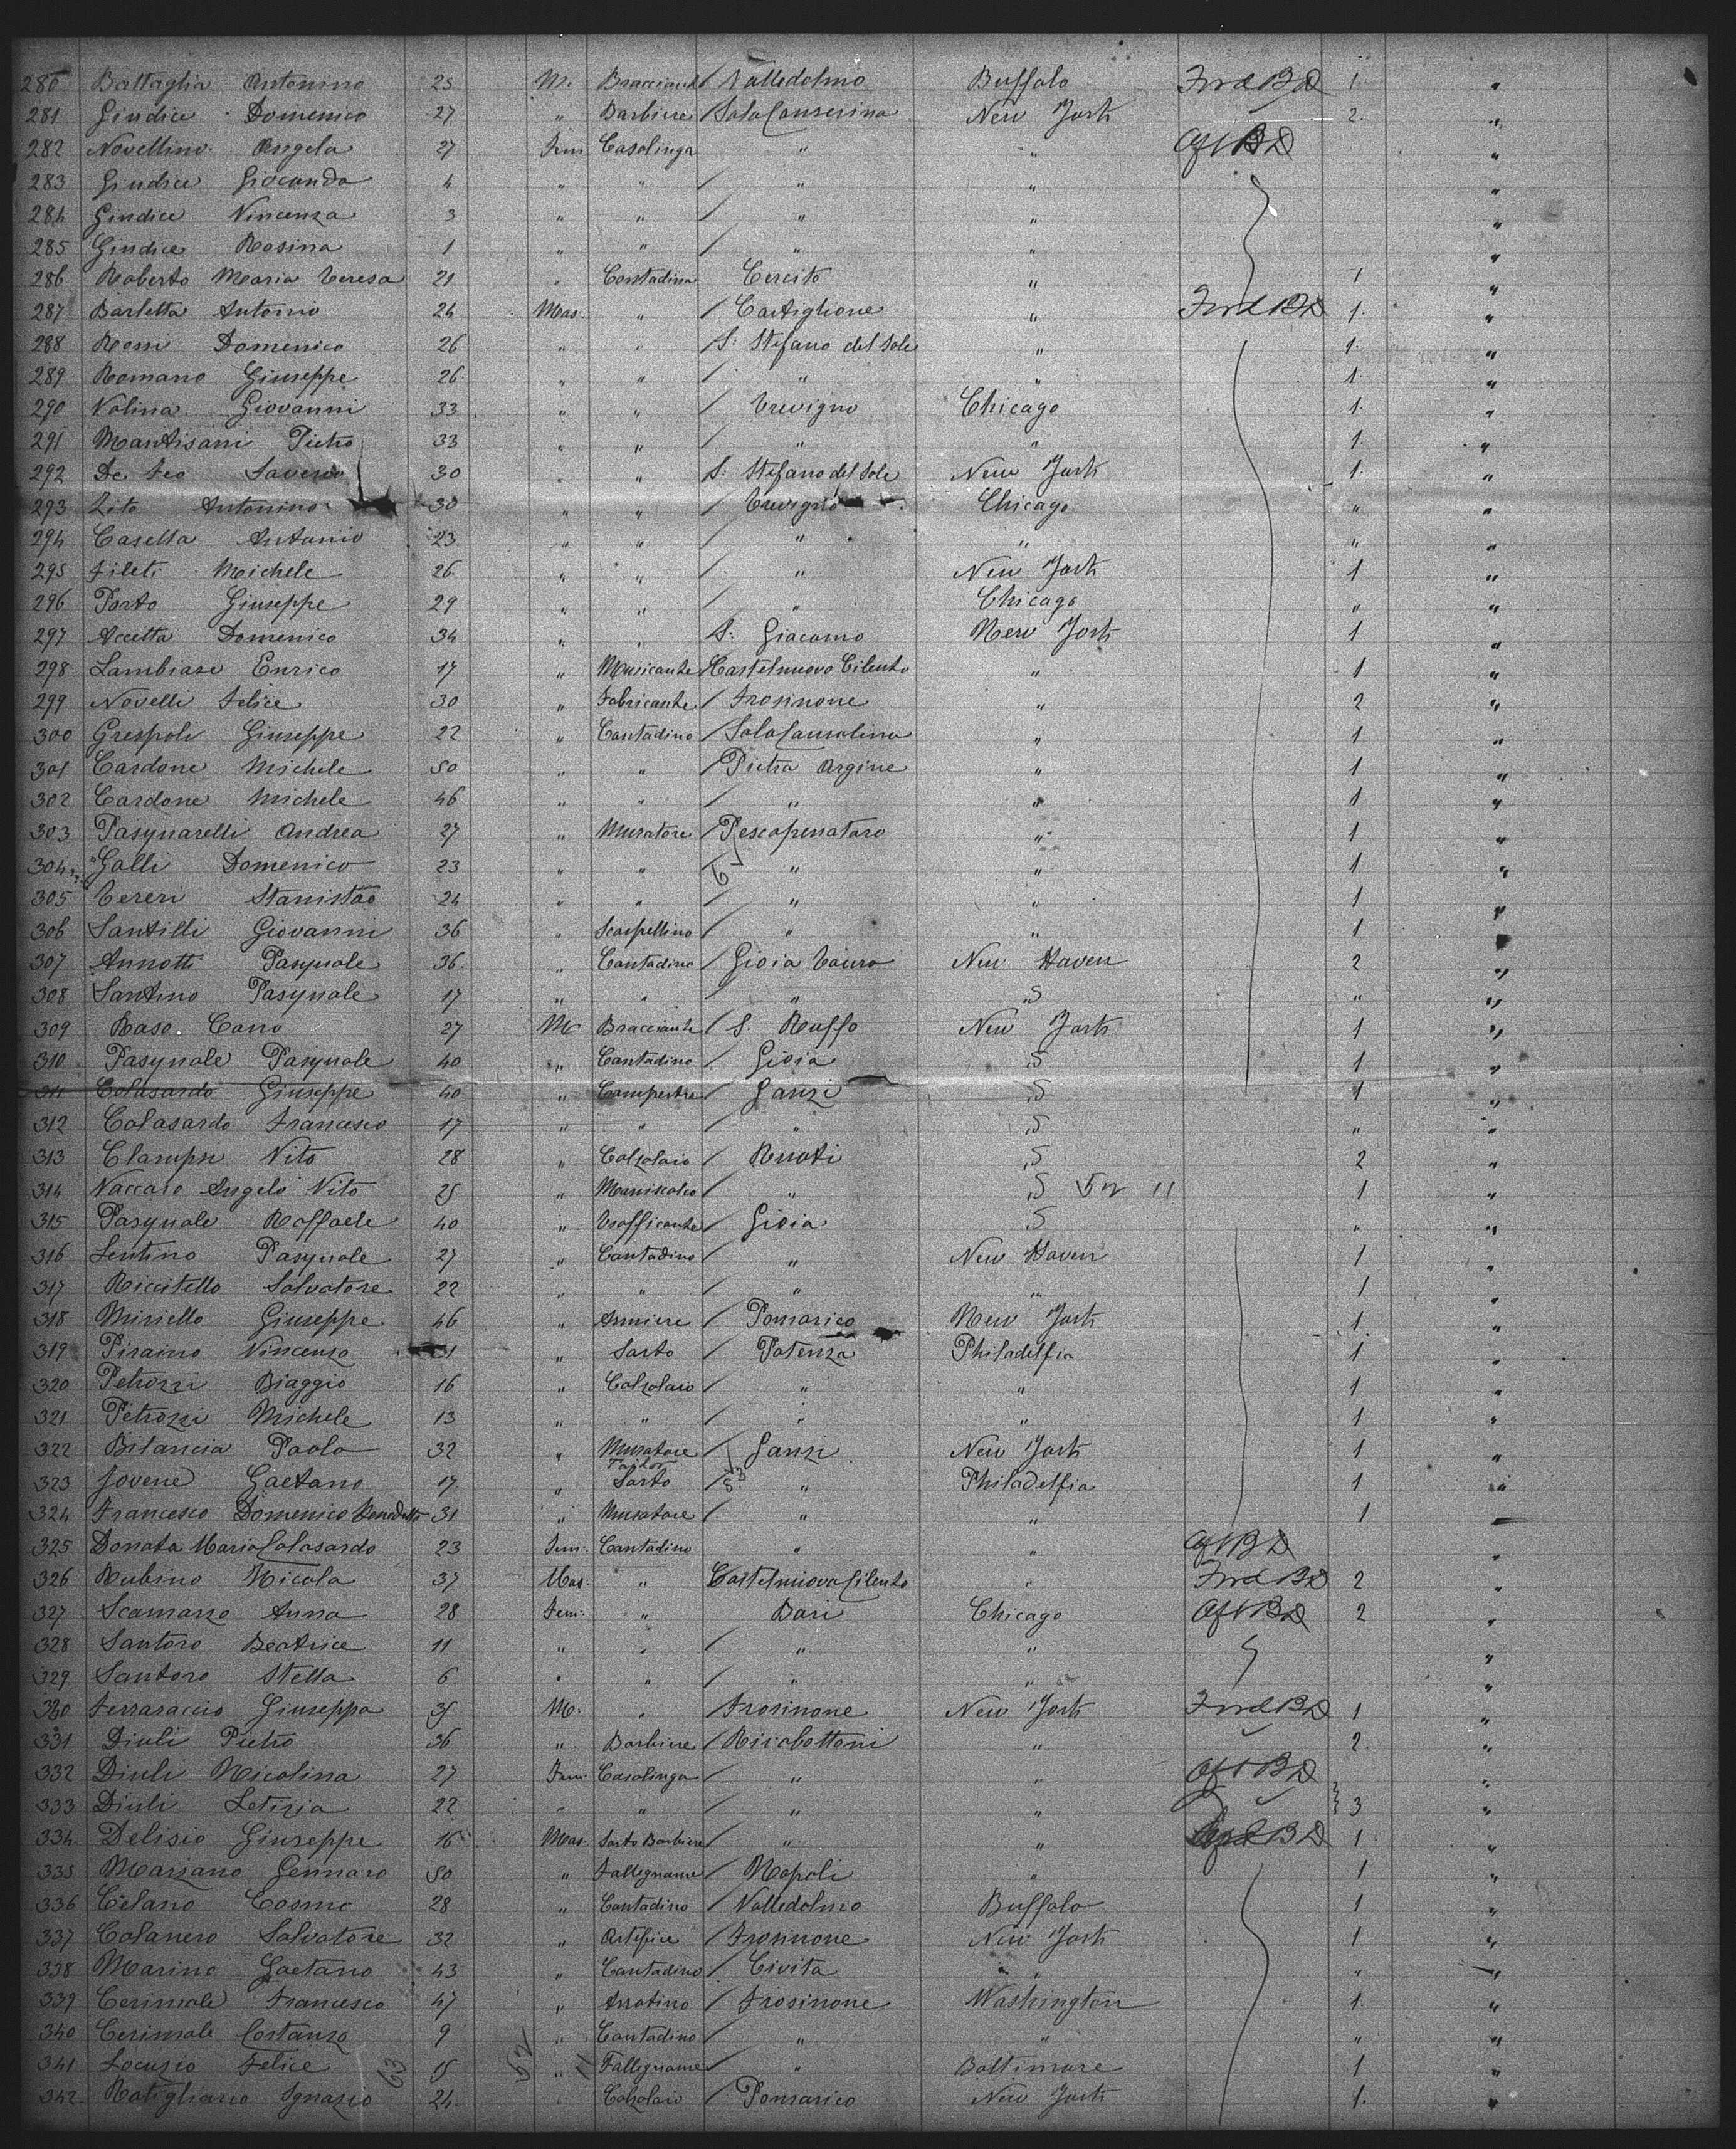 280 Battaglia Antonino 25 M. Bracciante / Valledolmo Buffalo Fwd BD 1. "
281 Giudice Domenico 27 " Barbiere / Sala Conserina New York 2. "
282 Novellino Angela 27 Fem Casalinga " " Aft BD "
283 Giudice Gioconda 4 " " / " " "
284 Giudice Vincenza 3 " " / " " "
285 Giudice Rosina 1 " " / " " "
286 Roberto Maria Teresa 21 " Contadina Cercito " 1 "
287 Barletta Antonio 26 Mas. " / Castiglione " Fwd BD 1. "
288 Rossi Domenico 26 " " / S. Stefano del Sole " 1. "
289 Romano Giuseppe 26 " " / " " 1. "
290 Volina Giovanni 33 " " / Trevigno Chicago 1. "
291 Mantisani Pietro 33 " " / " " 1. "
292 De Feo Saverio 30 " " S. Stefano del Sole New York 1. "
293 Zito Antonino 30 " " / Trevigno Chicago " "
294 Casella Antonio 23 " " / " " " "
295 Fileti Michele 26 " " / " New York 1 "
296 Porto Giuseppe 29 " " / " Chicago " "
297 Accetta Domenico 34 " " S. Giacomo New York 1 "
298 Lambiase Enrico 17 " Musicante / Castelnuovo Cilento " 1 "
299 Novelli Felice 30 " Fabricante / Frosinone " 2 "
300 Grespoli Giuseppe 22 " Contadino / Sala Consolina " 1 "
301 Cardone Michele 50 " " / Pietra Argine " 1 "
302 Cardone Michele 46 " " / " " 1 "
303 Pasquarelli Andrea 27 " Muratore / Pescopenataro " 1 "
304 Galli Domenico 23 " " " " 1 "
305 Tereri Stanistao 24 " " / " " 1 "
306 Santilli Giovanni 36 " Scarpellino / " " 1 "
307 Annotti Pasquale 36 " Contadino / Gioia Tauro New Haven 2 "
308 Santino Pasquale 17 " " / " " " "
309 Raso Carro 27 M. Bracciante / S. Ruffo New York 1 "
310 Pasquale Pasquale 40 " Contadino / Gioia " 1 "
311 Colasardo Giuseppe 40 " Campestre / Ganzi " 1 "
312 Colasardo Francesco 17 " " / " " " "
313 Clampsi Vito 28 " Calzolaio / Ruoti " 2 "
314 Vaccaro Angelo Vito 25 " Maniscalco / " " 52 11 1 "
315 Pasquale Raffaele 40 " Trafficante / Gioia " " "
316 Sentino Pasquale 27 " Contadino / " New Haven 1 "
317 Riccitello Salvatore 22 " " / " " 1 "
318 Miriello Giuseppe 46 " / Pomarico New York 1 "
319 Piraino Vincenzo 31 " Sarto / Potenza Philadelfia 1 "
320 Petrozzi Biaggio 16 " Calzolaio / " " 1 "
321 Petrozzi Michele 13 " " / " " 1 "
322 Bitancia Paolo 32 " Muratore / Ganzi New York 1 "
323 Jovene Gaetano 17 " Tailor Sarto / 83 " Philadelfia 1 "
324 Francesco Domenico Benedetto 31 " Muratore / " " 1
325 Donata Maria Colasardo 23 Fem: Contadino " " Aft BD "
326 Rubino Nicola 37 Mas: " Castelnuovo Cilento " Fwd BD 2 "
327 Scamarzo Anna 28 Fem: " Bari Chicago Aft BD 2 "
328 Santoro Beatrice 11 " " / " " "
329 Santoro Stella 6 " " / " " "
330 Ferraraccio Giuseppa 35 M. " / Frosinone New York Fwd BD 1 "
331 Diuli Pietro 36 " Barbiere / Ricabottoni " 2. "
332 Diuli Nicolina 27 Fem Casalinga / " " Aft BD "
333 Diuli Letizia 22 " " / " " 3 "
334 Delisio Giuseppe 16 Mas. Sarto Barbiere / " " BD 1 "
335 Marzano Gennaro 50 " Fallegname / Napoli " 1 "
336 Celano Cosmo 28 " Contadino / Valledolmo Buffalo 1 "
337 Colanero Salvatore 32 " Artefice / Frosinone New York 1 "
338 Marino Gaetano 43 " Contadino / Civita " " "
339 Cerimole Francesco 47 " Arrotino / Frosinone Washington 1. "
340 Cerimole Costanzo 9 " Contadino / " " " "
341 Locuzio Felice 63 15 52 " 11 Fallegname / " Baltimore 1 "
342 Ratigliano Ignazio 24 " Calzolaio / Pomarico New York 1. "